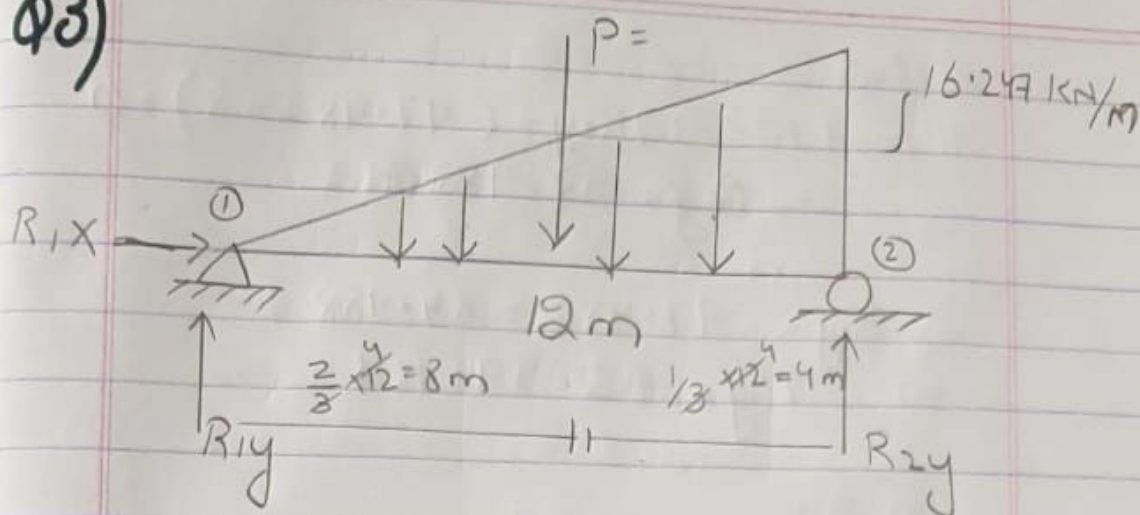 Q3)
P =
16.247 KN/m
①
R1X
②
12m
2/3 x 12 4 = 8m
1/3 x 12 4 = 4m
R1y
R2y